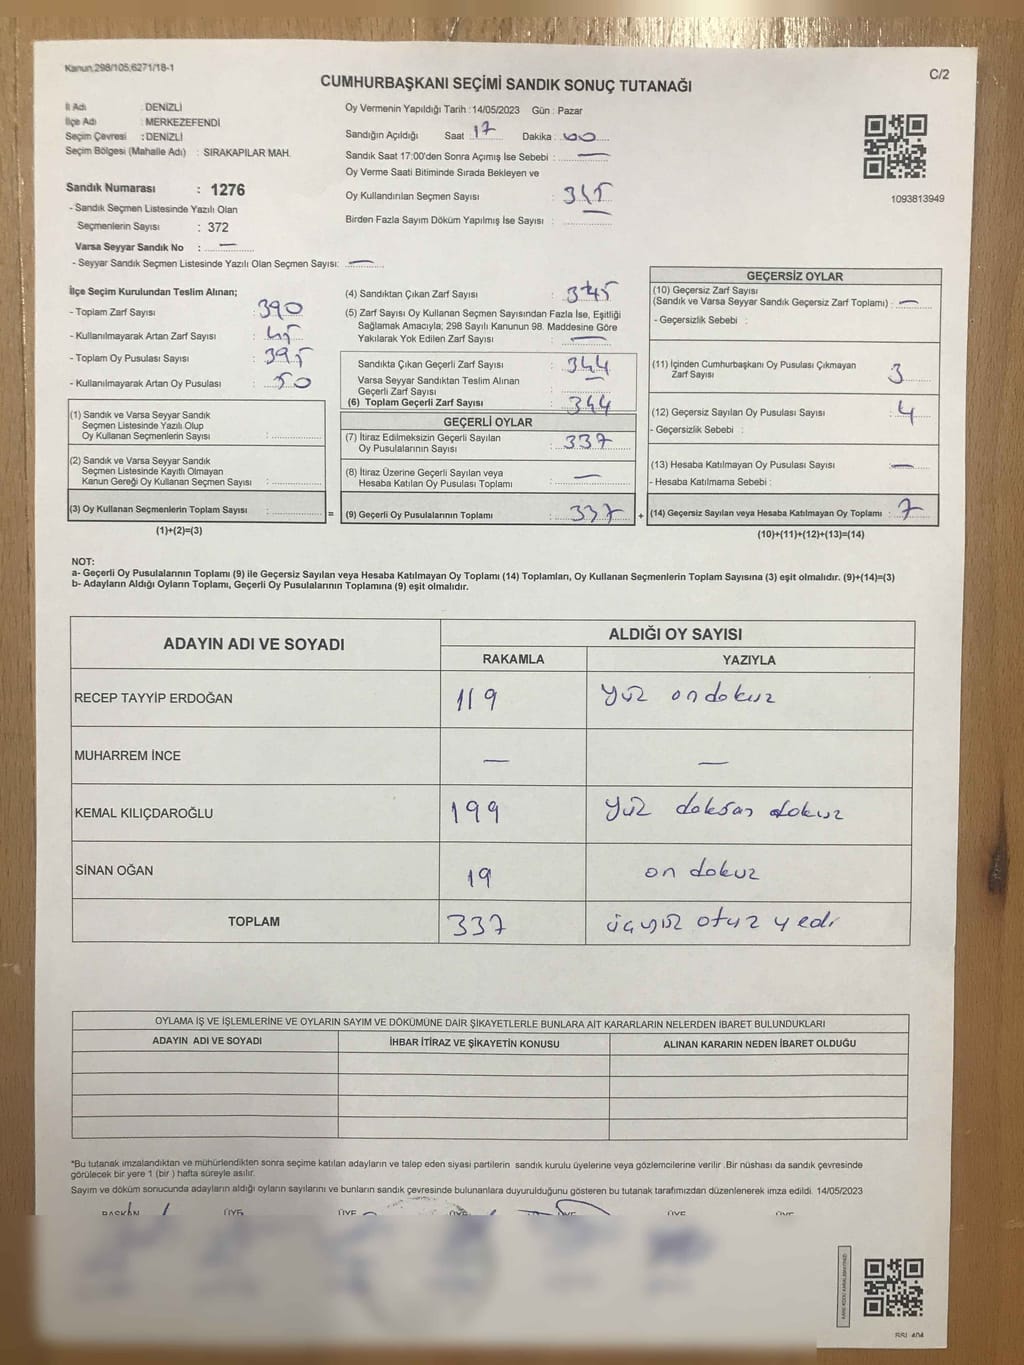 Kanun.298/105,6271/18-1
C/2
CUMHURBAŞKANI SEÇİMİ SANDIK SONUÇ TUTANAĞI
İl Adı : DENİZLİ
İlçe Adı : MERKEZEFENDİ
Seçim Çevresi : DENİZLİ
Seçim Bölgesi (Mahalle Adı) : SIRAKAPILAR MAH.
Sandık Numarası : 1276
- Sandık Seçmen Listesinde Yazılı Olan
Seçmenlerin Sayısı : 372
Varsa Seyyar Sandık No : —
- Seyyar Sandık Seçmen Listesinde Yazılı Olan Seçmen Sayısı: —
Oy Vermenin Yapıldığı Tarih : 14/05/2023 Gün : Pazar
Sandığın Açıldığı Saat : 17 Dakika : 00
Sandık Saat 17:00'den Sonra Açımış İse Sebebi : —
Oy Verme Saati Bitiminde Sırada Bekleyen ve
Oy Kullandırılan Seçmen Sayısı : 345
Birden Fazla Sayım Döküm Yapılmış İse Sayısı : —
1093813949
İlçe Seçim Kurulundan Teslim Alınan;
- Toplam Zarf Sayısı : 390
- Kullanılmayarak Artan Zarf Sayısı : 45
- Toplam Oy Pusulası Sayısı : 395
- Kullanılmayarak Artan Oy Pusulası : 50
(1) Sandık ve Varsa Seyyar Sandık
Seçmen Listesinde Yazılı Olup
Oy Kullanan Seçmenlerin Sayısı :
(2) Sandık ve Varsa Seyyar Sandık
Seçmen Listesinde Kayıtlı Olmayan
Kanun Gereği Oy Kullanan Seçmen Sayısı :
(3) Oy Kullanan Seçmenlerin Toplam Sayısı : =
(1)+(2)=(3)
(4) Sandıktan Çıkan Zarf Sayısı : 345
(5) Zarf Sayısı Oy Kullanan Seçmen Sayısından Fazla İse, Eşitliği
Sağlamak Amacıyla; 298 Sayılı Kanunun 98. Maddesine Göre
Yakılarak Yok Edilen Zarf Sayısı : —
Sandıkta Çıkan Geçerli Zarf Sayısı : 344
Varsa Seyyar Sandıktan Teslim Alınan
Geçerli Zarf Sayısı : —
(6) Toplam Geçerli Zarf Sayısı : 344
GEÇERLİ OYLAR
(7) İtiraz Edilmeksizin Geçerli Sayılan
Oy Pusulalarının Sayısı : 337
(8) İtiraz Üzerine Geçerli Sayılan veya
Hesaba Katılan Oy Pusulası Toplamı : —
(9) Geçerli Oy Pusulalarının Toplamı : 337 +
GEÇERSİZ OYLAR
(10) Geçersiz Zarf Sayısı
(Sandık ve Varsa Seyyar Sandık Geçersiz Zarf Toplamı) : —
- Geçersizlik Sebebi :
(11) İçinden Cumhurbaşkanı Oy Pusulası Çıkmayan
Zarf Sayısı : 3
(12) Geçersiz Sayılan Oy Pusulası Sayısı : 4
- Geçersizlik Sebebi :
(13) Hesaba Katılmayan Oy Pusulası Sayısı : —
- Hesaba Katılmama Sebebi :
(14) Geçersiz Sayılan veya Hesaba Katılmayan Oy Toplamı : 7
(10)+(11)+(12)+(13)=(14)
NOT:
a- Geçerli Oy Pusulalarının Toplamı (9) ile Geçersiz Sayılan veya Hesaba Katılmayan Oy Toplamı (14) Toplamları, Oy Kullanan Seçmenlerin Toplam Sayısına (3) eşit olmalıdır. (9)+(14)=(3)
b- Adayların Aldığı Oyların Toplamı, Geçerli Oy Pusulalarının Toplamına (9) eşit olmalıdır.
ADAYIN ADI VE SOYADI
ALDIĞI OY SAYISI
RAKAMLA YAZIYLA
RECEP TAYYİP ERDOĞAN 119 yüz on dokuz
MUHARREM İNCE — —
KEMAL KILIÇDAROĞLU 199 yüz doksan dokuz
SİNAN OĞAN 19 on dokuz
TOPLAM 337 üçyüz otuz yedi
OYLAMA İŞ VE İŞLEMLERİNE VE OYLARIN SAYIM VE DÖKÜMÜNE DAİR ŞİKAYETLERLE BUNLARA AİT KARARLARIN NELERDEN İBARET BULUNDUKLARI
ADAYIN ADI VE SOYADI İHBAR İTİRAZ VE ŞİKAYETİN KONUSU ALINAN KARARIN NEDEN İBARET OLDUĞU
*Bu tutanak imzalandıktan ve mühürlendikten sonra seçime katılan adayların ve talep eden siyasi partilerin sandık kurulu üyelerine veya gözlemcilerine verilir .Bir nüshası da sandık çevresinde
görülecek bir yere 1 (bir ) hafta süreyle asılır.
Sayım ve döküm sonucunda adayların aldığı oyların sayılarını ve bunların sandık çevresinde bulunanlara duyurulduğunu gösteren bu tutanak tarafımızdan düzenlenerek imza edildi. 14/05/2023
BAŞKAN ÜYE ÜYE ÜYE ÜYE ÜYE ÜYE